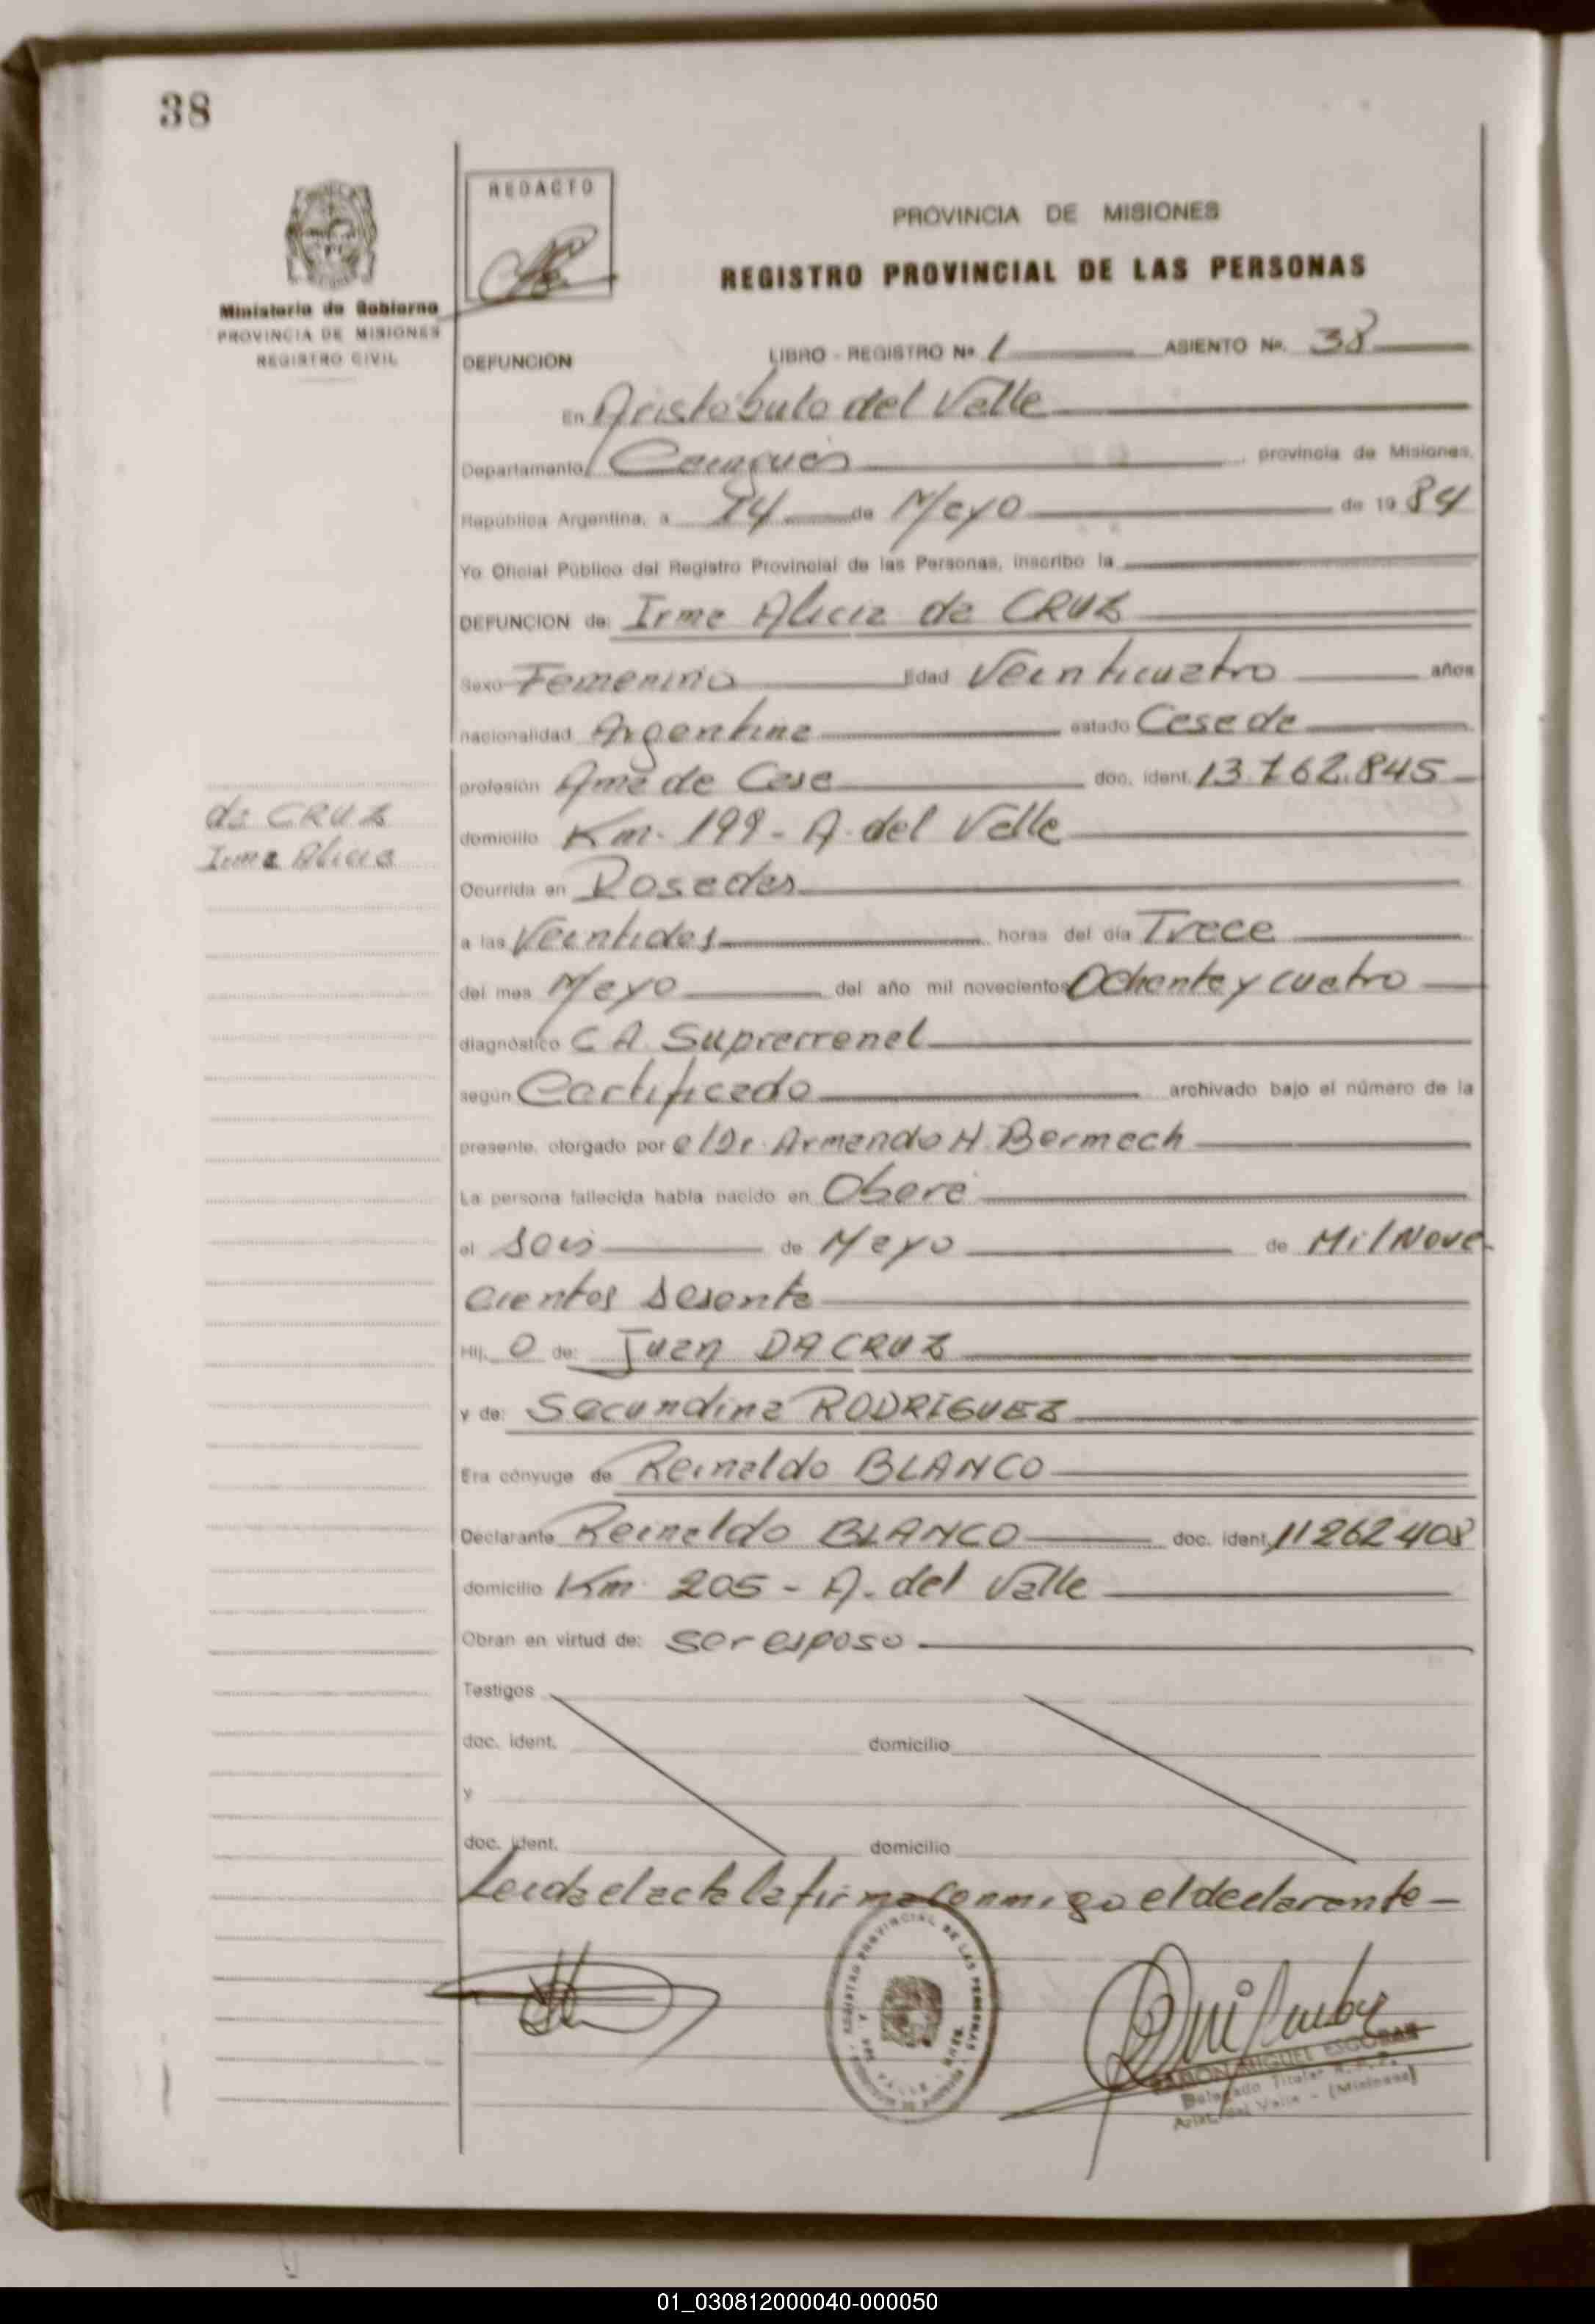 38
REDACTO
Ministerio de Gobierno
PROVINCIA DE MISIONES
REGISTRO CIVIL
PROVINCIA DE MISIONES
REGISTRO PROVINCIAL DE LAS PERSONAS
DEFUNCION LIBRO - REGISTRO Nº 1 ASIENTO Nº. 38
En Aristóbulo del Valle
Departamento Cainguás provincia de Misiones,
República Argentina, a 14 de Mayo de 1984
Yo Oficial Público del Registro Provincial de las Personas, inscribo la
DEFUNCION de: Irma Alicia da CRUZ
Sexo Femenino Edad Veinticuatro años
nacionalidad Argentina estado Casada
profesión Ama de Casa doc. ident. 13.762.845
da CRUZ
Irma Alicia
domicilio Km. 199 - A. del Valle
Ocurrida en Posadas
a las Veintidos horas del día Trece
del mes Mayo del año mil novecientos Ochenta y cuatro
diagnóstico C A. Suprarrenal
según Certificado archivado bajo el número de la
presente, otorgado por el Dr. Armando H. Bermach
La persona fallecida había nacido en Oberá
el Seis de Mayo de Mil Nove
cientos Sesenta
Hij. O de: Juan DA CRUZ
y de: Secundina RODRIGUEZ
Era cónyuge de Reinaldo BLANCO
Declarante Reinaldo BLANCO doc. ident. 11262408
domicilio Km. 205 - A. del Valle
Obran en virtud de: Ser esposo
Testigos
doc. ident. domicilio
y
doc. ident. domicilio
Leida el acta la firma conmigo el declarante
REGISTRO PROVINCIAL DE LAS PERSONAS
RAMON MIGUEL ESCOBAR
Delegado Titular R. P. P.
Arist. del Valle - (Misiones)
01_030812000040-000050